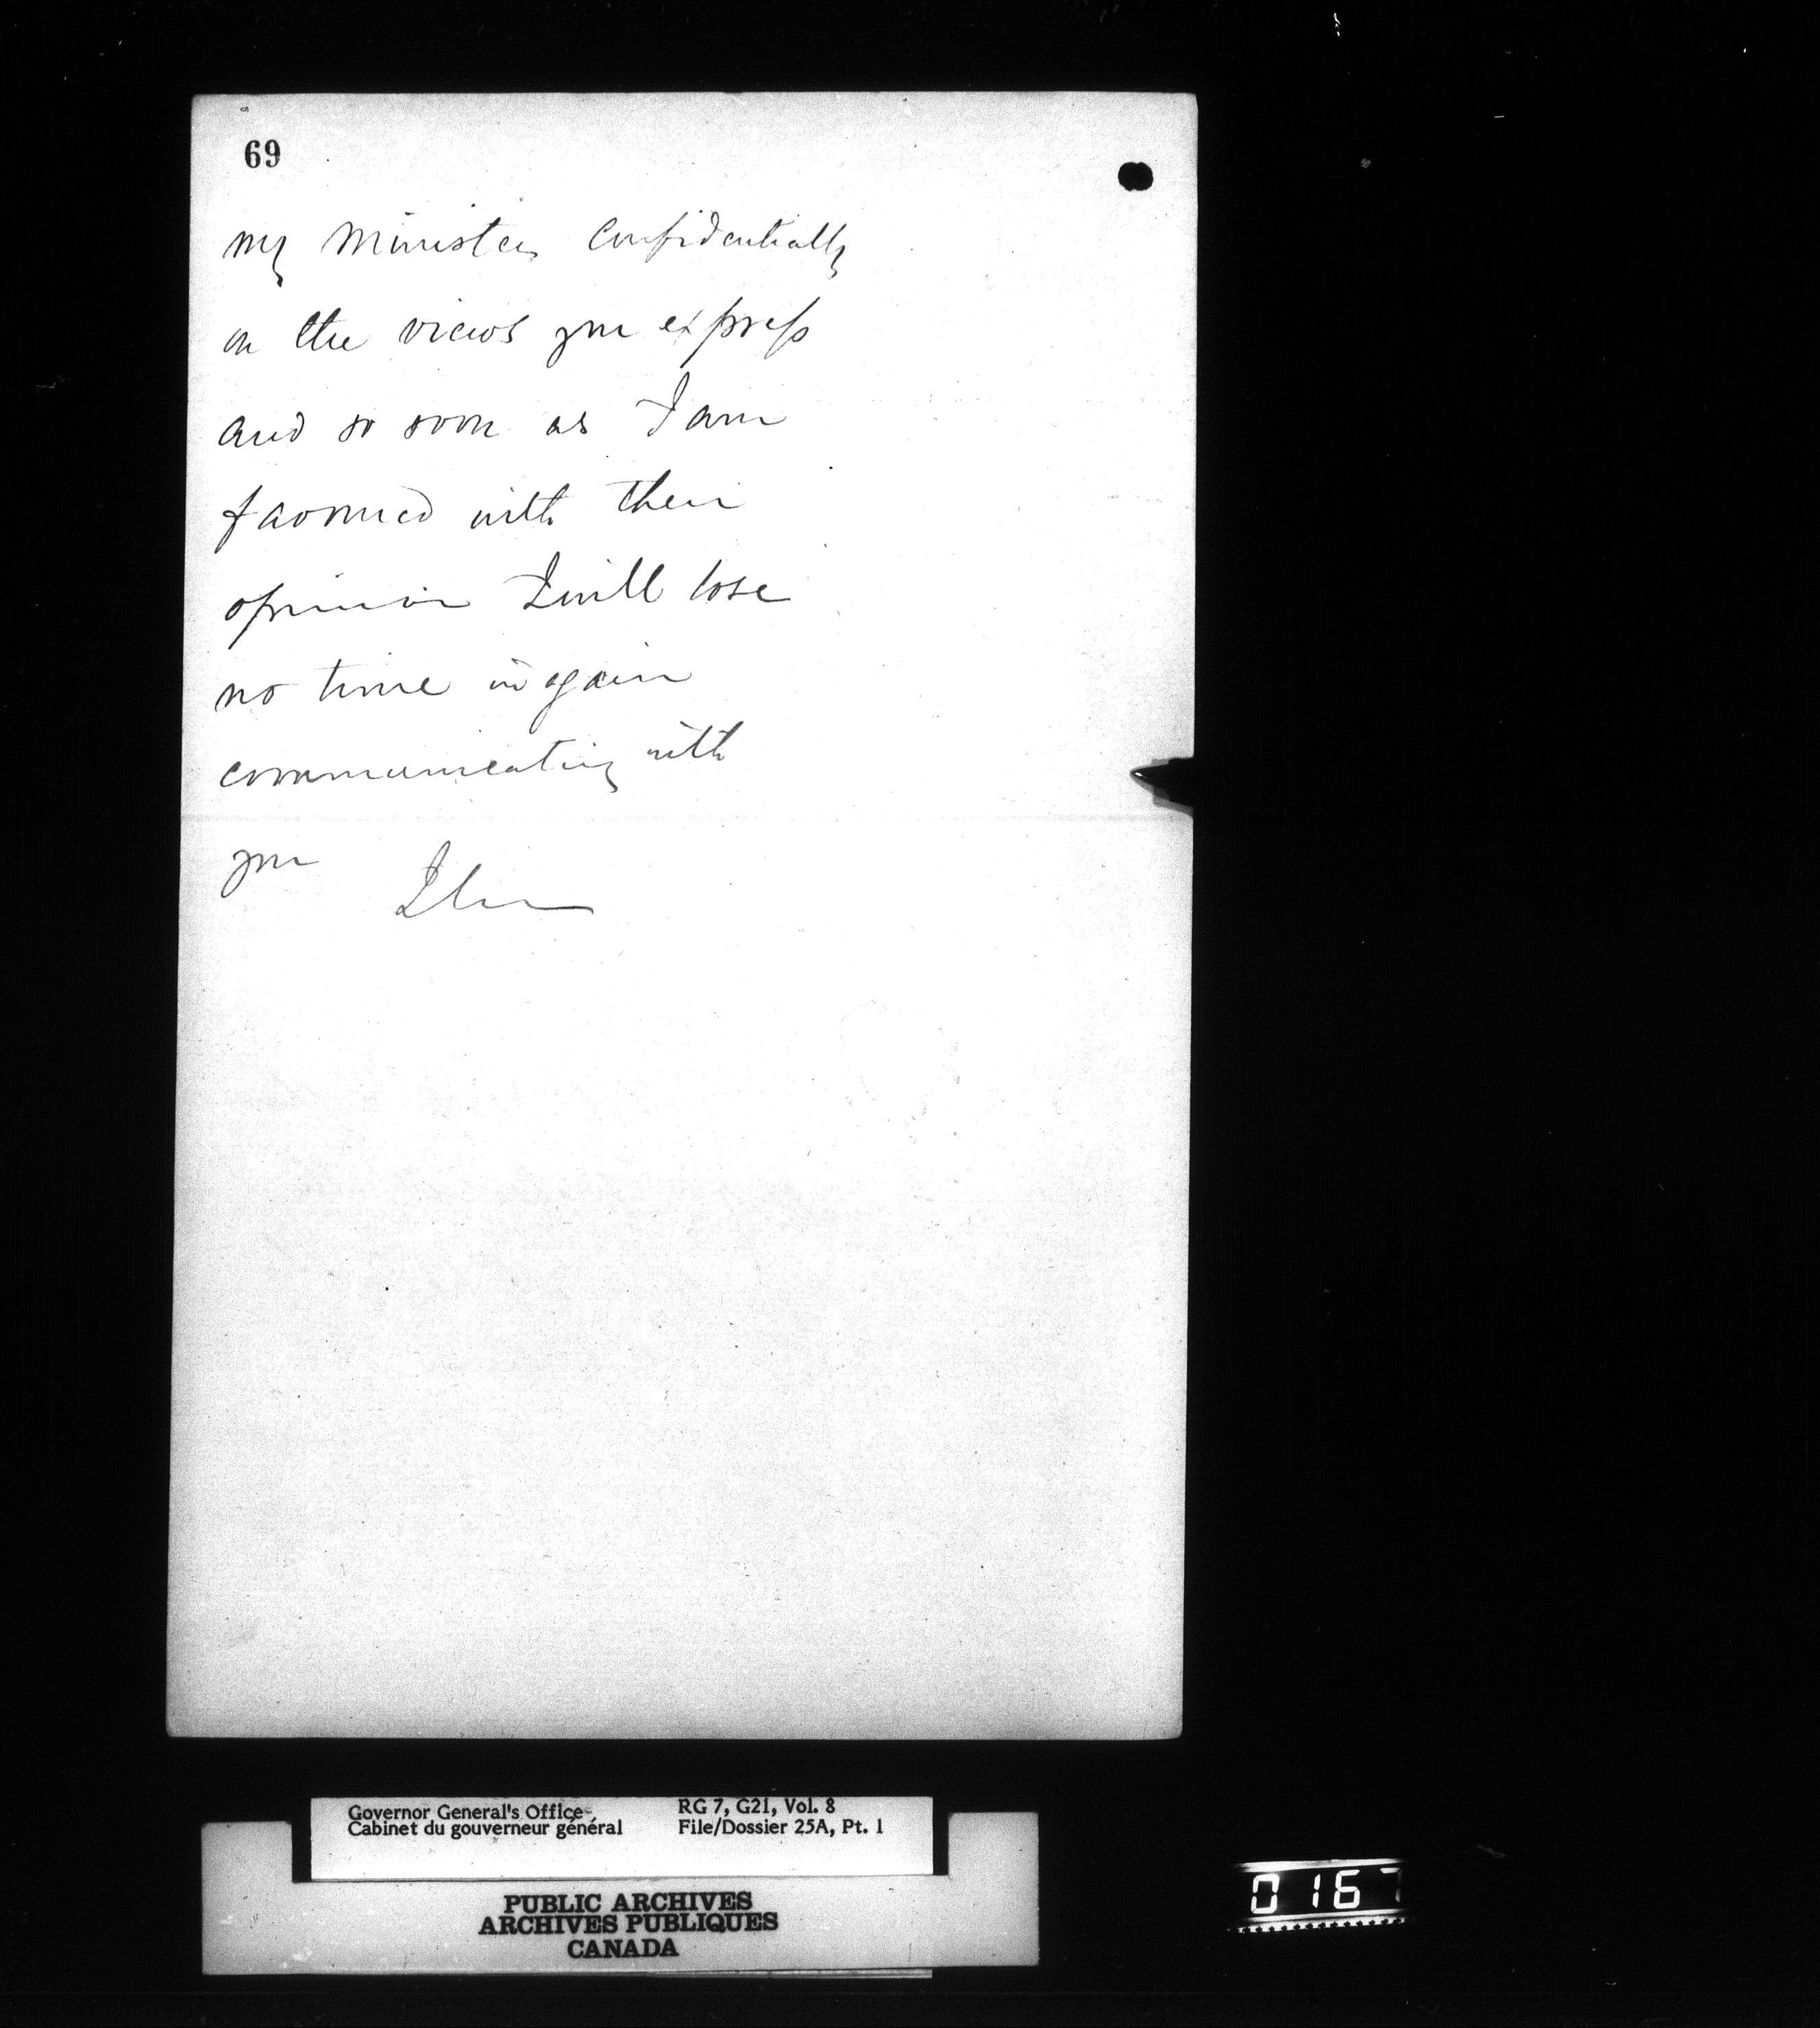 69
my Ministers confidentially
on the views you express
and so soon as I am
favoured with their
opinion I will lose
no time in again
communicating with
you
I have
Governor General's Office
Cabinet du gouverneur général
RG 7, G21, Vol. 8
File/Dossier 25A, Pt. 1
PUBLIC ARCHIVES
ARCHIVES PUBLIQUES
CANADA
0167